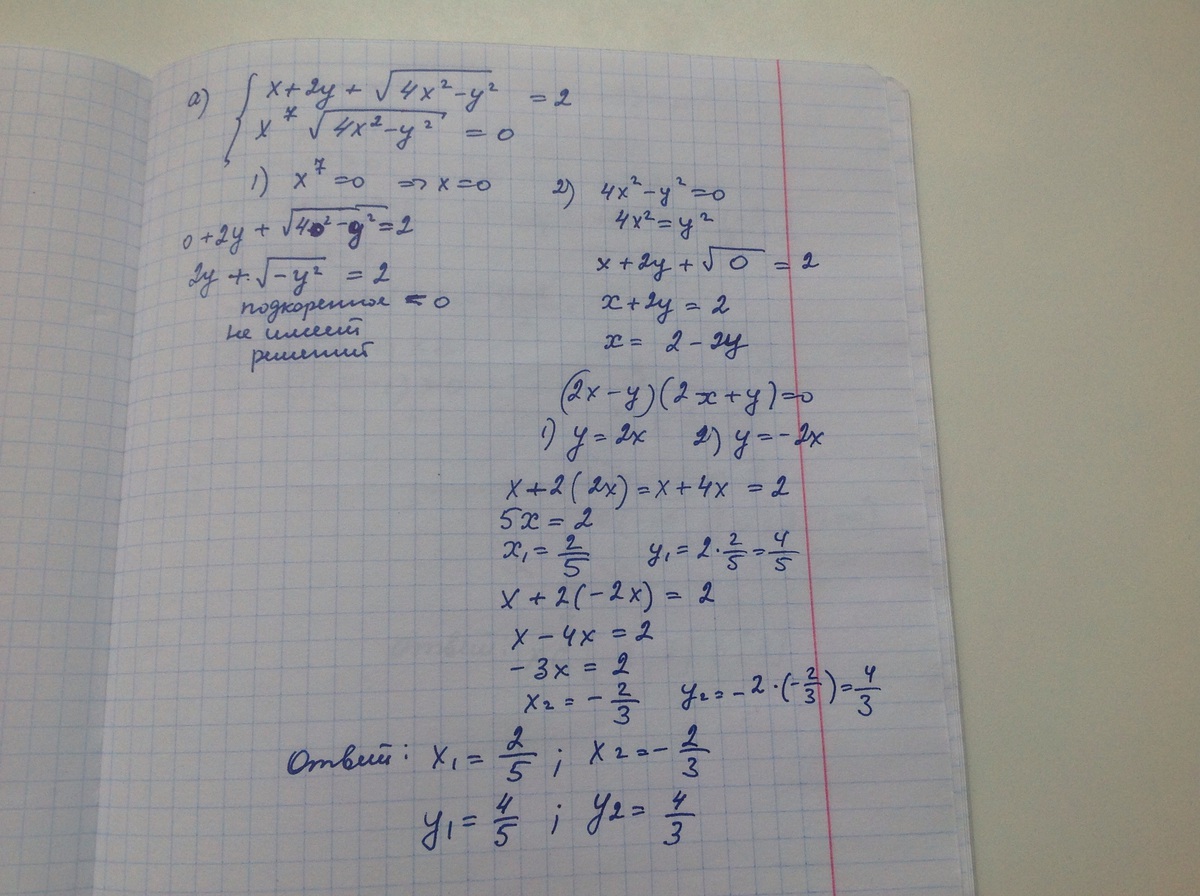 а) { x + 2y + √(4x² - y²) = 2
x⁷ √(4x² - y²) = 0
1) x⁷ = 0 => x = 0
0 + 2y + √(40² - y²) = 2
2y + √(-y²) = 2
подкоренное = 0
не имеет
решений
2) 4x² - y² = 0
4x² = y²
x + 2y + √0 = 2
x + 2y = 2
x = 2 - 2y
(2x - y)(2x + y) = 0
1) y = 2x 2) y = -2x
x + 2(2x) = x + 4x = 2
5x = 2
x₁ = 2/5 y₁ = 2 · 2/5 = 4/5
x + 2(-2x) = 2
x - 4x = 2
-3x = 2
x₂ = -2/3 y₂ = -2 · (-2/3) = 4/3
Ответ: x₁ = 2/5 ; x₂ = -2/3
y₁ = 4/5 ; y₂ = 4/3